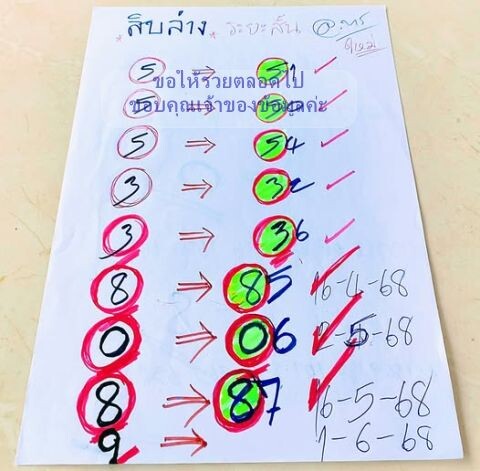 *สิบล่าง* ระยะสั้น
5 ⇒ 51 ✓
ขอให้รวยตลอดไป
ขอบคุณเจ้าของข้อมูลค่ะ
5 ⇒ ✓
5 ⇒ 54 ✓
3 ⇒ 32 ✓
3 ⇒ 36 ✓
8 ⇒ 85 ✓ 16-4-68
0 ⇒ 06 ✓ 2-5-68
8 ⇒ 87 ✓ 16-5-68
9 ⇒ 1-6-68